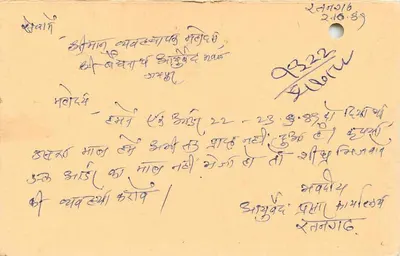 रतनगढ
सेवामें
श्रीमान् व्यवस्थापक महोदय
श्री बैद्यनाथ आयुर्वेद भवन
महोदय
हमने एक आर्डर 22-23 9-89 को दिया था
उसका माल हमें अभी तक प्राप्त नहीं हुआ है। कृपया
उक्त आर्डर का माल नहीं भेजा हो तो शीघ्र भिजवाने
की व्यवस्था करावें।
भवदीय
आयुर्वेद प्रचार कार्यालय
रतनगढ